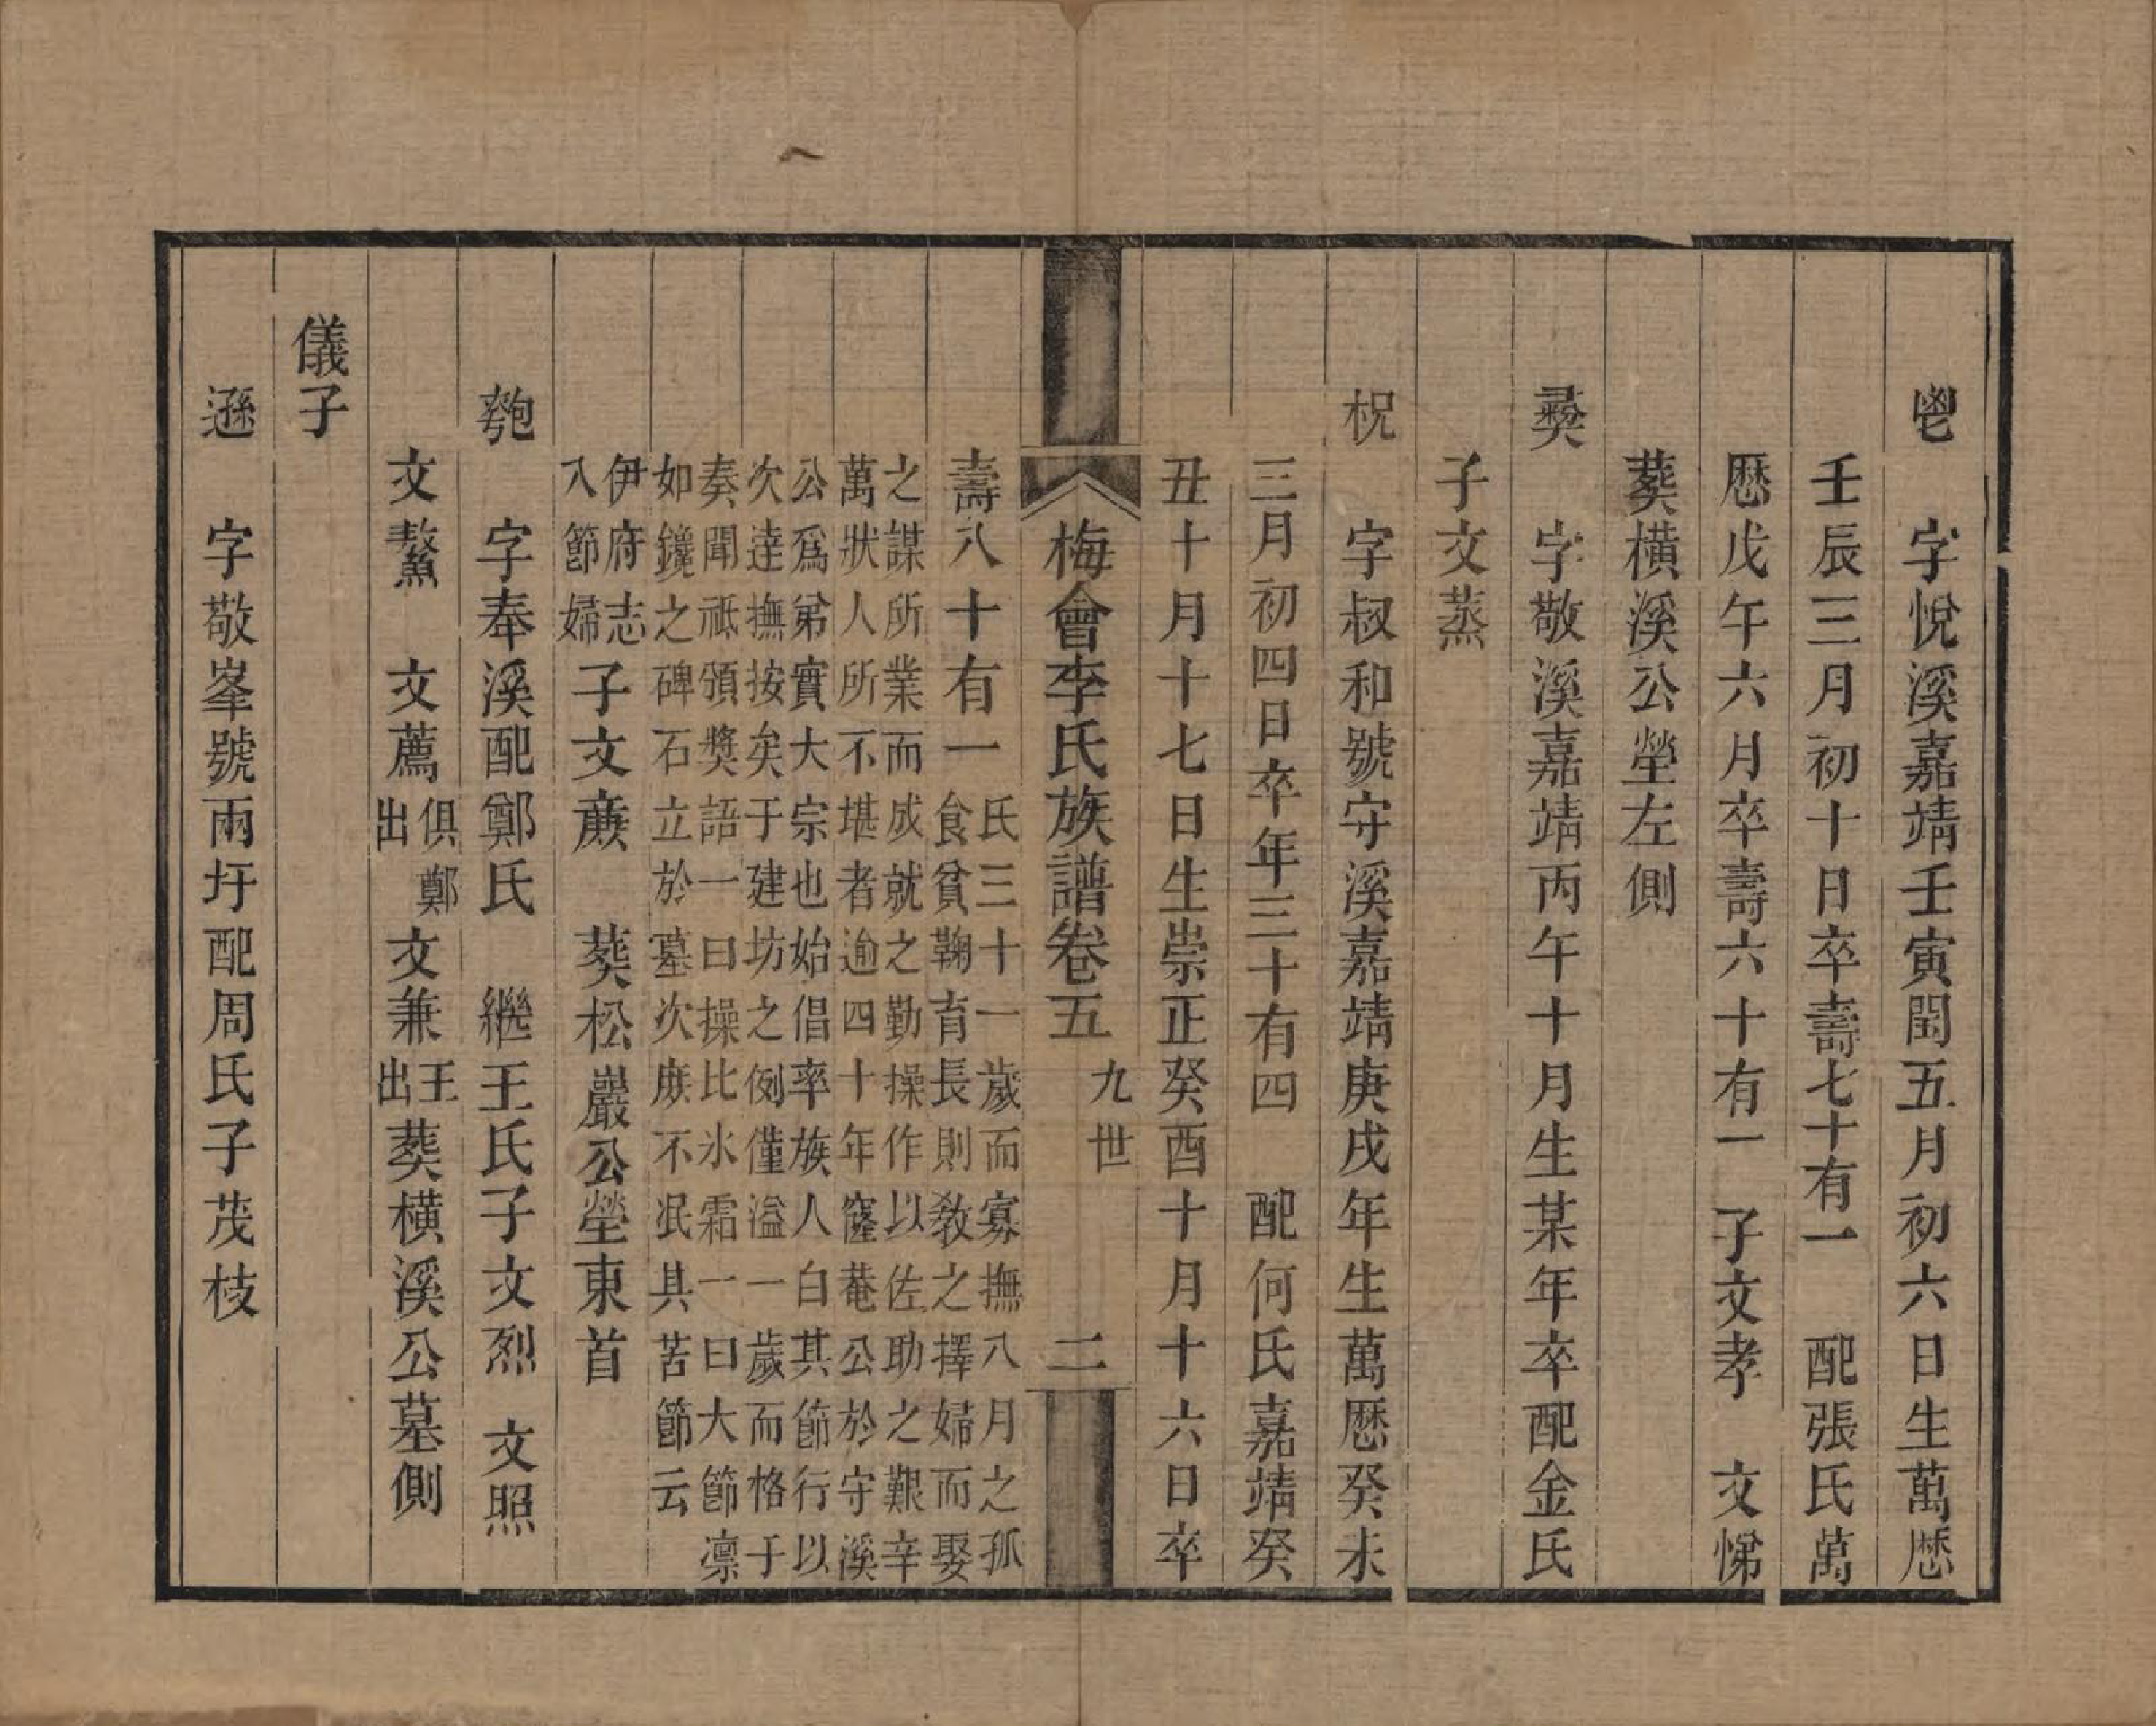 鬯　字悅溪嘉靖壬寅閏五月初六日生萬歷
壬辰三月初十日卒壽七十有一　配張氏萬
歷戊午六月卒壽六十有一　子文孝　文悌
葬橫溪公塋左側
彛　字敬溪嘉靖丙午十月生某年卒配金氏
子文蒸
柷　字叔和號守溪嘉靖庚戌年生萬歷癸未
三月初四日卒年三十有四　配何氏嘉靖癸
丑十月十七日生崇正癸酉十月十六日卒
梅會李氏族譜卷五　九世　二
壽八十有一
氏三十一歲而寡撫八月之孤
食貧鞠育長則敎之擇婦而娶
之謀所業而成就之勤操作以佐助之艱辛
萬狀人所不堪者逾四十年窿菴公於守溪
公爲弟實大宗也始倡率族人白其節行以
次達撫按矣于建坊之例僅溢一歲而格于
奏聞祗頒獎語一曰操比氷霜一曰大節凛
如鑱之碑石立於墓次庶不泯其苦節云
伊府志
入節婦
子文蔗　葬松巖公塋東首
匏　字奉溪配鄭氏　繼王氏子文烈　文照
文鰲　文薦俱鄭出　文兼王出葬橫溪公墓側
儀子
遜　字敬峯號兩圩配周氏子茂枝